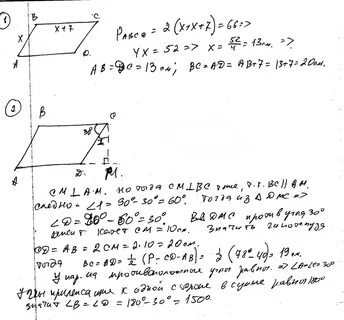 1
B C
x+7
x
A D.
P_ABCD = 2(x+x+7) = 66 =>
4x = 52 => x = 52/4 = 13см. =>
AB = DC = 13см; BC = AD = AB+7 = 13+7 = 20см.
2
B C
30°
A D. M.
CM ⊥ AM. но тогда CM ⊥ BC т.к. BC ∥ AM.
= 90°-30° = 60°. Тогда из △DMC =>
∠D = 90° - 60° = 30°. В △DMC против угла 30°
лежит катет CM = 10см. Значит гипотенуза
CD = AB = 2CM = 2·10 = 20см.
тогда BC = AD = 1/2 (P-CD-AB) = 1/2 (78-40) = 19см.
У пар-ма противоположные углы равны. => ∠A=∠C=30°
Углы к одной стороне в сумме равны 180
значит ∠B = ∠D = 180°-30° = 150°.